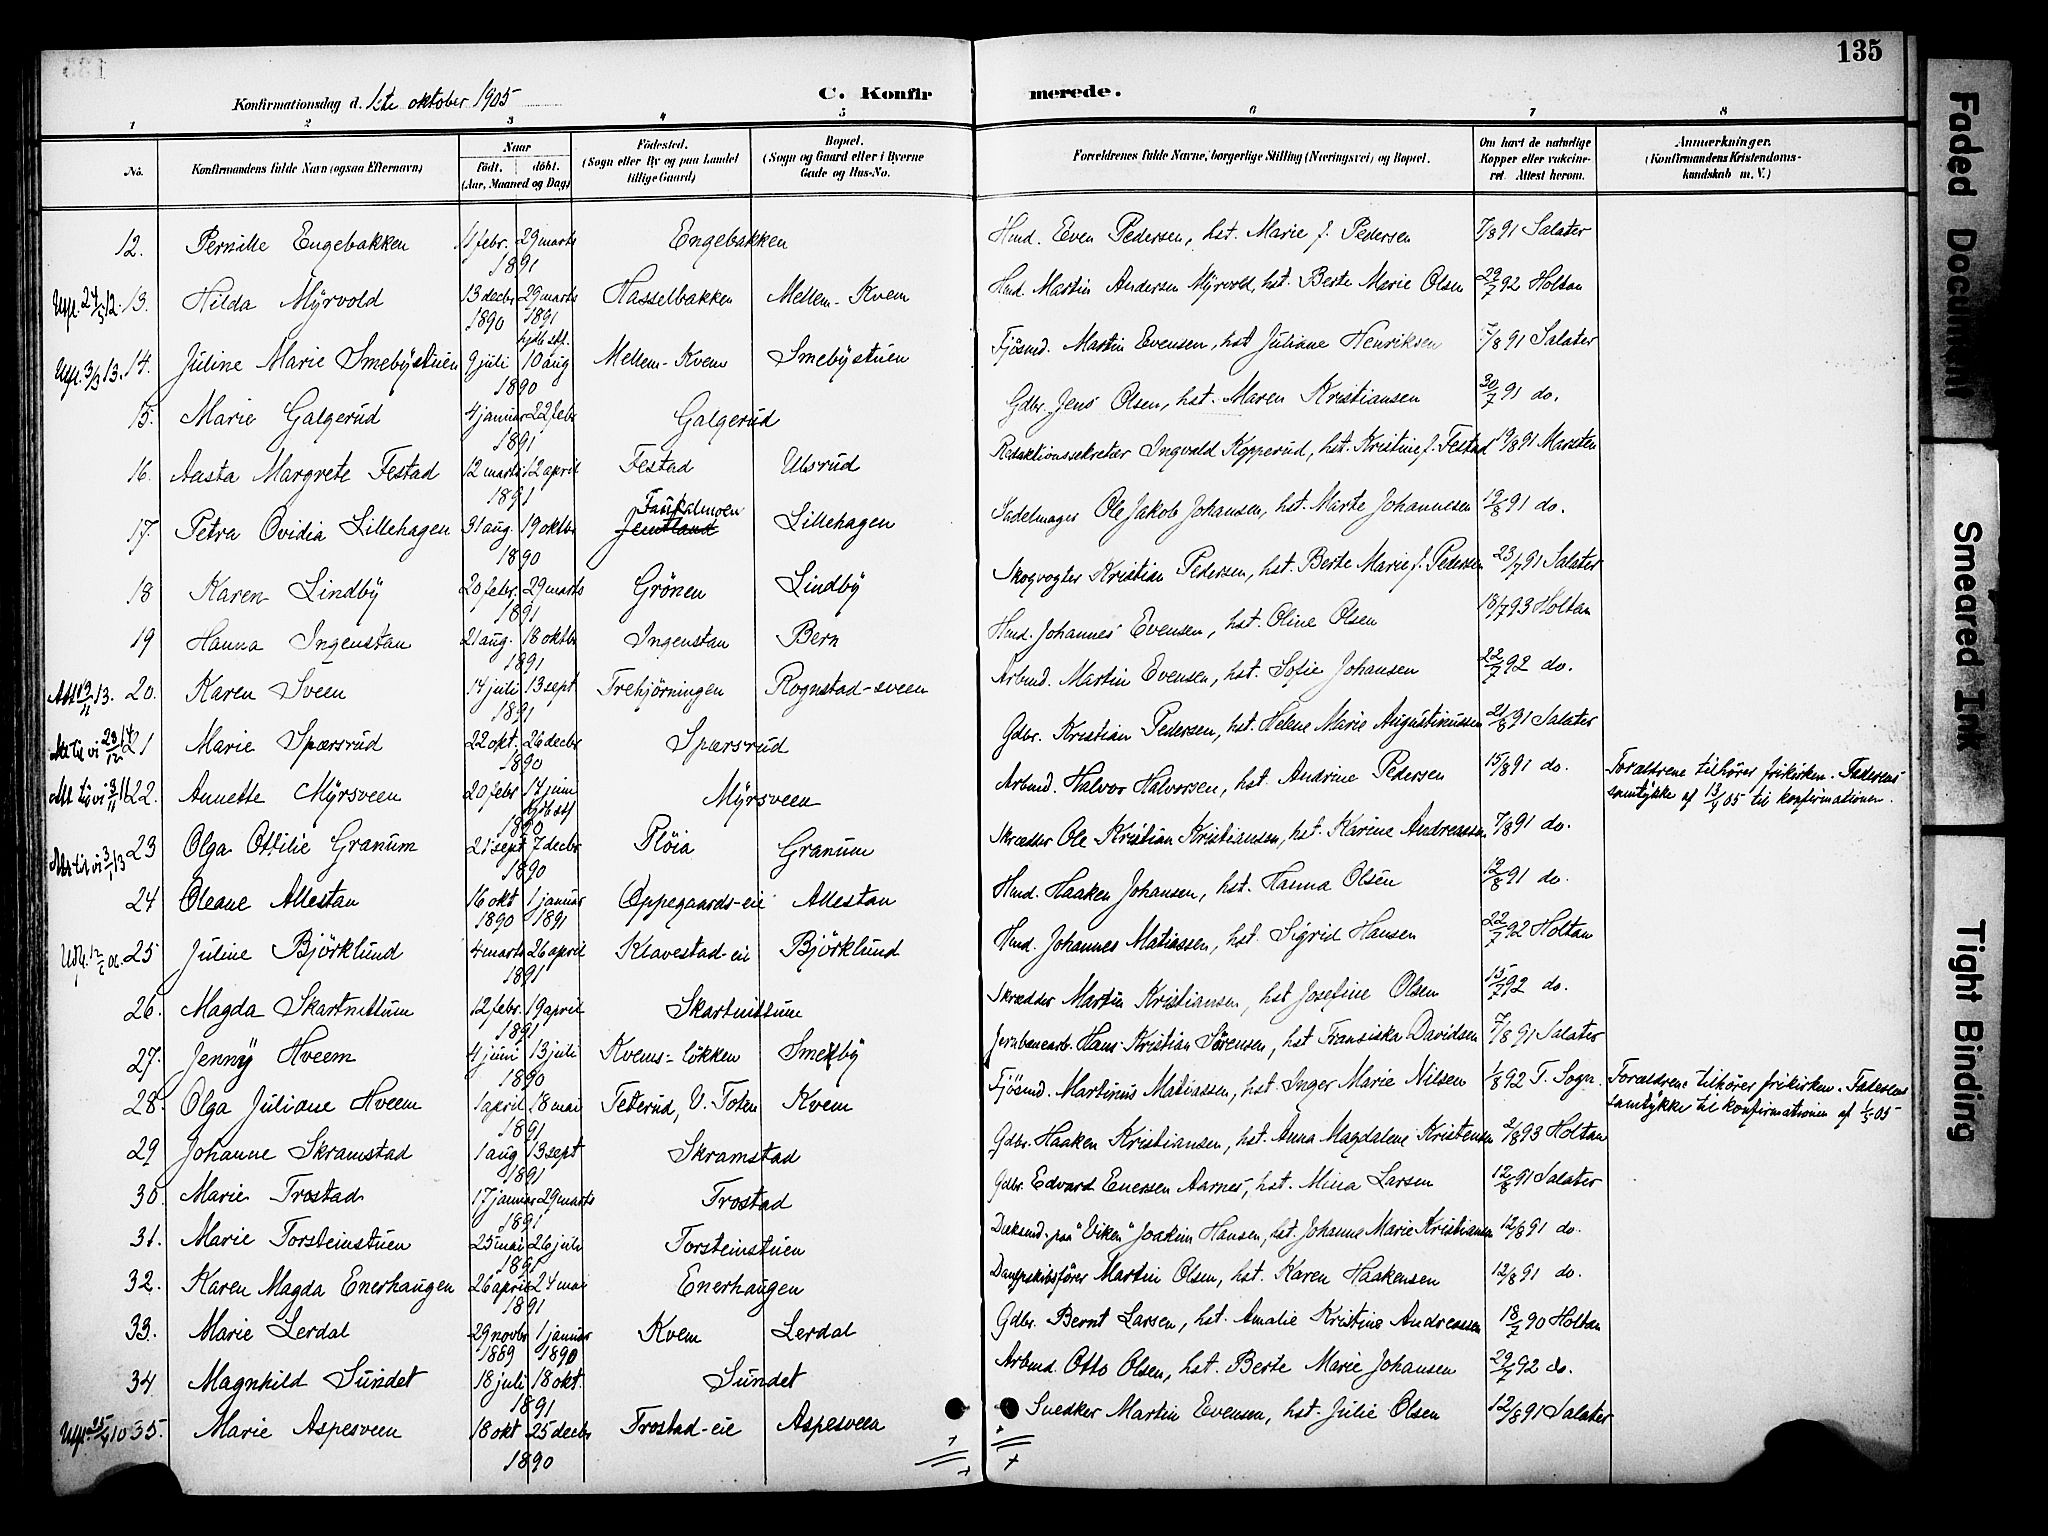 135
Konfirmationsdag d. 1ste oktober 1905
C. Konfir merede.
1 2 3 4 5 6 7 8
No.
Konfirmandens fulde Navn (ogsaa Efternavn)
Naar
Födt. döbt.
(Aar, Maaned og Dag)
Födested.
(Sogn eller By og paa Landet
tillige Gaard)
Bopæl.
(Sogn og Gaard eller i Byerne
Gade og Hus-No.
Forældrenes fulde Navne, borgerlige Stilling (Næringsvei) og Bopæl.
Om havt de naturlige
Kopper eller vakcine-
ret. Attest herom.
Anmærkninger.
(Konfirmandens Kristendoms-
kundskab m. V.)
12. Pernille Engebakken 11 febr. 29 marts 1891 Engebakken Hmd. Even Pedersen, hst. Marie f. Pedersen 7/8 91 Salater
13. Hilda Myrvold 13 decbr 1890 29 marts 1891 Hasselbakken Mellem-Kvem Hmd. Martin Andersen Myrvold, hst. Berte Marie Olsen 29/7 92 Holtan
14. Juline Marie Smebystuen 9 juli 10 aug 1890 Mellem-Kvem Smebystuen Fjösmd. Martin Evensen, hst Juliane Henriksen 7/8 91 Salater
15. Marie Galgerud 4 januar 22 febr 1891 Galgerud Gdbr. Jens Olsen, hst. Maren Kristiansen 30/7 91 do.
16. Aasta Margrete Festad 12 marts 12 april 1891 Festad Ulsrud Redaktionssekretær Ingvald Kopperud, hst. Kristine f. Festad 19/8 91 Marsten
17. Petra Ovidia Lillehagen 31 aug. 19 oktbr 1890 Jemtland Lillehagen Sadelmager Ole Jakob Johansen, hst. Marte Johannesen 19/8 91 do.
18 Karen Lindby 20 febr. 29 marts 1891 Grönen Lindby Skogvogter Kristian Pedersen, hst. Berte Marie f. Pedersen 23/7 91 Salater
19 Hanna Ingenstan 21 aug. 18 oktbr 1891 Ingenstan Bern Hmd. Johannes Evensen, hst. Oline Olsen 18/7 93 Holtan
20. Karen Sveen 14 juli 13 sept 1891 Trehjörningen Rognstad-sveen Arbmd. Martin Evensen, hst. Sofie Johansen 22/7 92 do.
21 Marie Spærsrud 22 okt. 26 decbr 1890 Spærsrud Gdbr. Kristian Pedersen, hst. Helene Marie Augustinussen 21/8 91 Salater
22. Annette Myrsveen 20 febr 17 juni 1890 Myrsveen Arbmd. Halvor Halvorsen, hst. Andrine Pedersen 15/8 91 do. Forældrene tilhörer frikirken. Faderens
samtykke af 13/4 05 til konfirmationen.
23 Olga Ottilie Granum 21 sept 7 decbr 1890 Plöia Granum Skrædder Ole Kristian Kristiansen, hst. Karine Andreassen 7/8 91 do.
24 Oleane Allestan 16 okt 1890 1 januar 1891 Oppegaards-eie Allestan Hmd. Haaken Johansen, hst. Hanna Olsen 12/8 91 do.
25 Juline Björklund 4 marts 26 april 1891 Klavestad-eie Björklund Hmd. Johannes Matiassen, hst. Sigrid Hansen 22/7 92 Holtan
26. Magda Skartnittum 12 febr. 19 april 1891 Skartnittum Skrædder Martin Kristiansen, hst Josefine Olsen 15/7 92 do.
27. Jenny Hveem 4 juni 13 juli 1890 Kvems-lökken Smeby Jernbanearb. Hans Kristian Sörensen, hst Fransiska Davidsen 7/8 91 Salater
28. Olga Juliane Hveem 1 april 18 mai 1891 Teterud, V. Toten Kvem Fjösmd. Martinus Matiassen, hst. Inger Marie Nilsen 1/8 92 T. Sogn. Forældrene tilhörer frikirken. Faderens
samtykke til konfirmationen af 1/5 05
29 Johanne Skramstad 1 aug 13 sept 1891 Skramstad Gdbr. Haaken Kristiansen, hst. Anna Magdalene Kristensen 2/8 93 Holtan
30. Marie Trostad 17 januar 29 marts 1891 Trostad Gdbr. Edvard Enersen Aarnes, hst. Mina Larsen 12/8 91 Salater
31. Marie Torsteinstuen 25 mai 26 juli 1891 Torsteinstuen Dæksmd. paa "Viken" Joakim Hansen, hst. Johanne Marie Kristiansen 12/8 91 do.
32. Karen Magda Enerhaugen 26 april 24 mai 1891 Enerhaugen Dampskibsförer Martin Olsen, hst. Karen Haakensen 12/8 91 do.
33. Marie Lerdal 29 novbr 1889 1 januar 1890 Kvem Lerdal Gdbr. Bernt Larsen, hst. Amalie Kristine Andreassen 18/7 90 Holtan
34 Magnhild Sundet 18 juli 18 okt. 1891 Sundet Arbmd. Otto Olsen, hst. Berte Marie Johansen 29/7 92 do.
35. Marie Aspesveen 18 okt 25 decbr 1890 Trostad-eie Aspesveen Snedker Martin Evensen, hst. Julie Olsen 12/8 91 Salater
Faded Document
Smeared Ink
Tight Binding